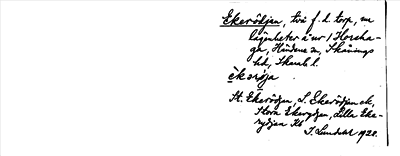 Ekerödjen, två f. d. torp, nu
lägenheter å nr 1 Horsha-
ga, Händene sn, Skånings
hd, Skarab. l.
ekoröja
St. Ekerödjen, L. Ekerödjen ek,
Stora Ekerydjen, Lilla Eke-
rydjen Kb
J. Lundahl 1920.